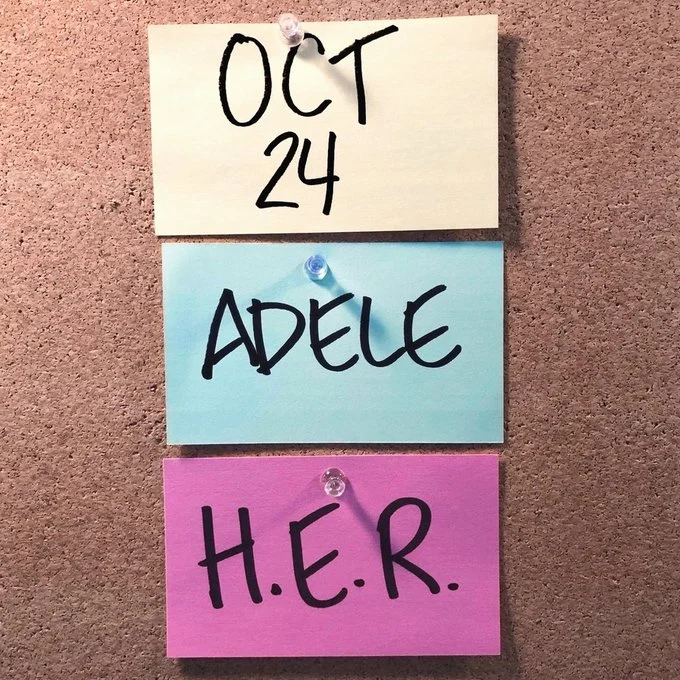 OCT
24
ADELE
H.E.R.